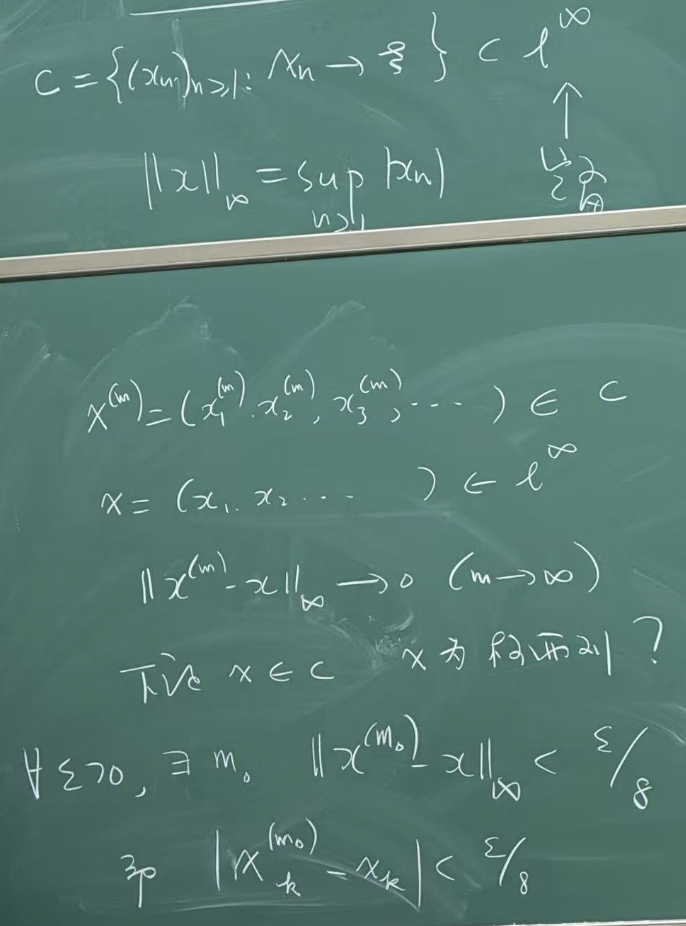 C = {(xₙ)ₙ≥₁: xₙ → ξ} ⊂ l^∞
↑
‖x‖_∞ = sup_{n≥1} |xₙ|
x^(m) = (x₁^(m), x₂^(m), x₃^(m), ⋯) ∈ C
x = (x₁, x₂ ⋯ ) ∈ l^∞
‖x^(m) - x‖_∞ → 0 (m→∞)
下证 x ∈ C x 为 ?
∀ ε>0, ∃ m₀ ‖x^(m₀) - x‖_∞ < ε/8
即 |x_k^(m₀) - x_k| < ε/8